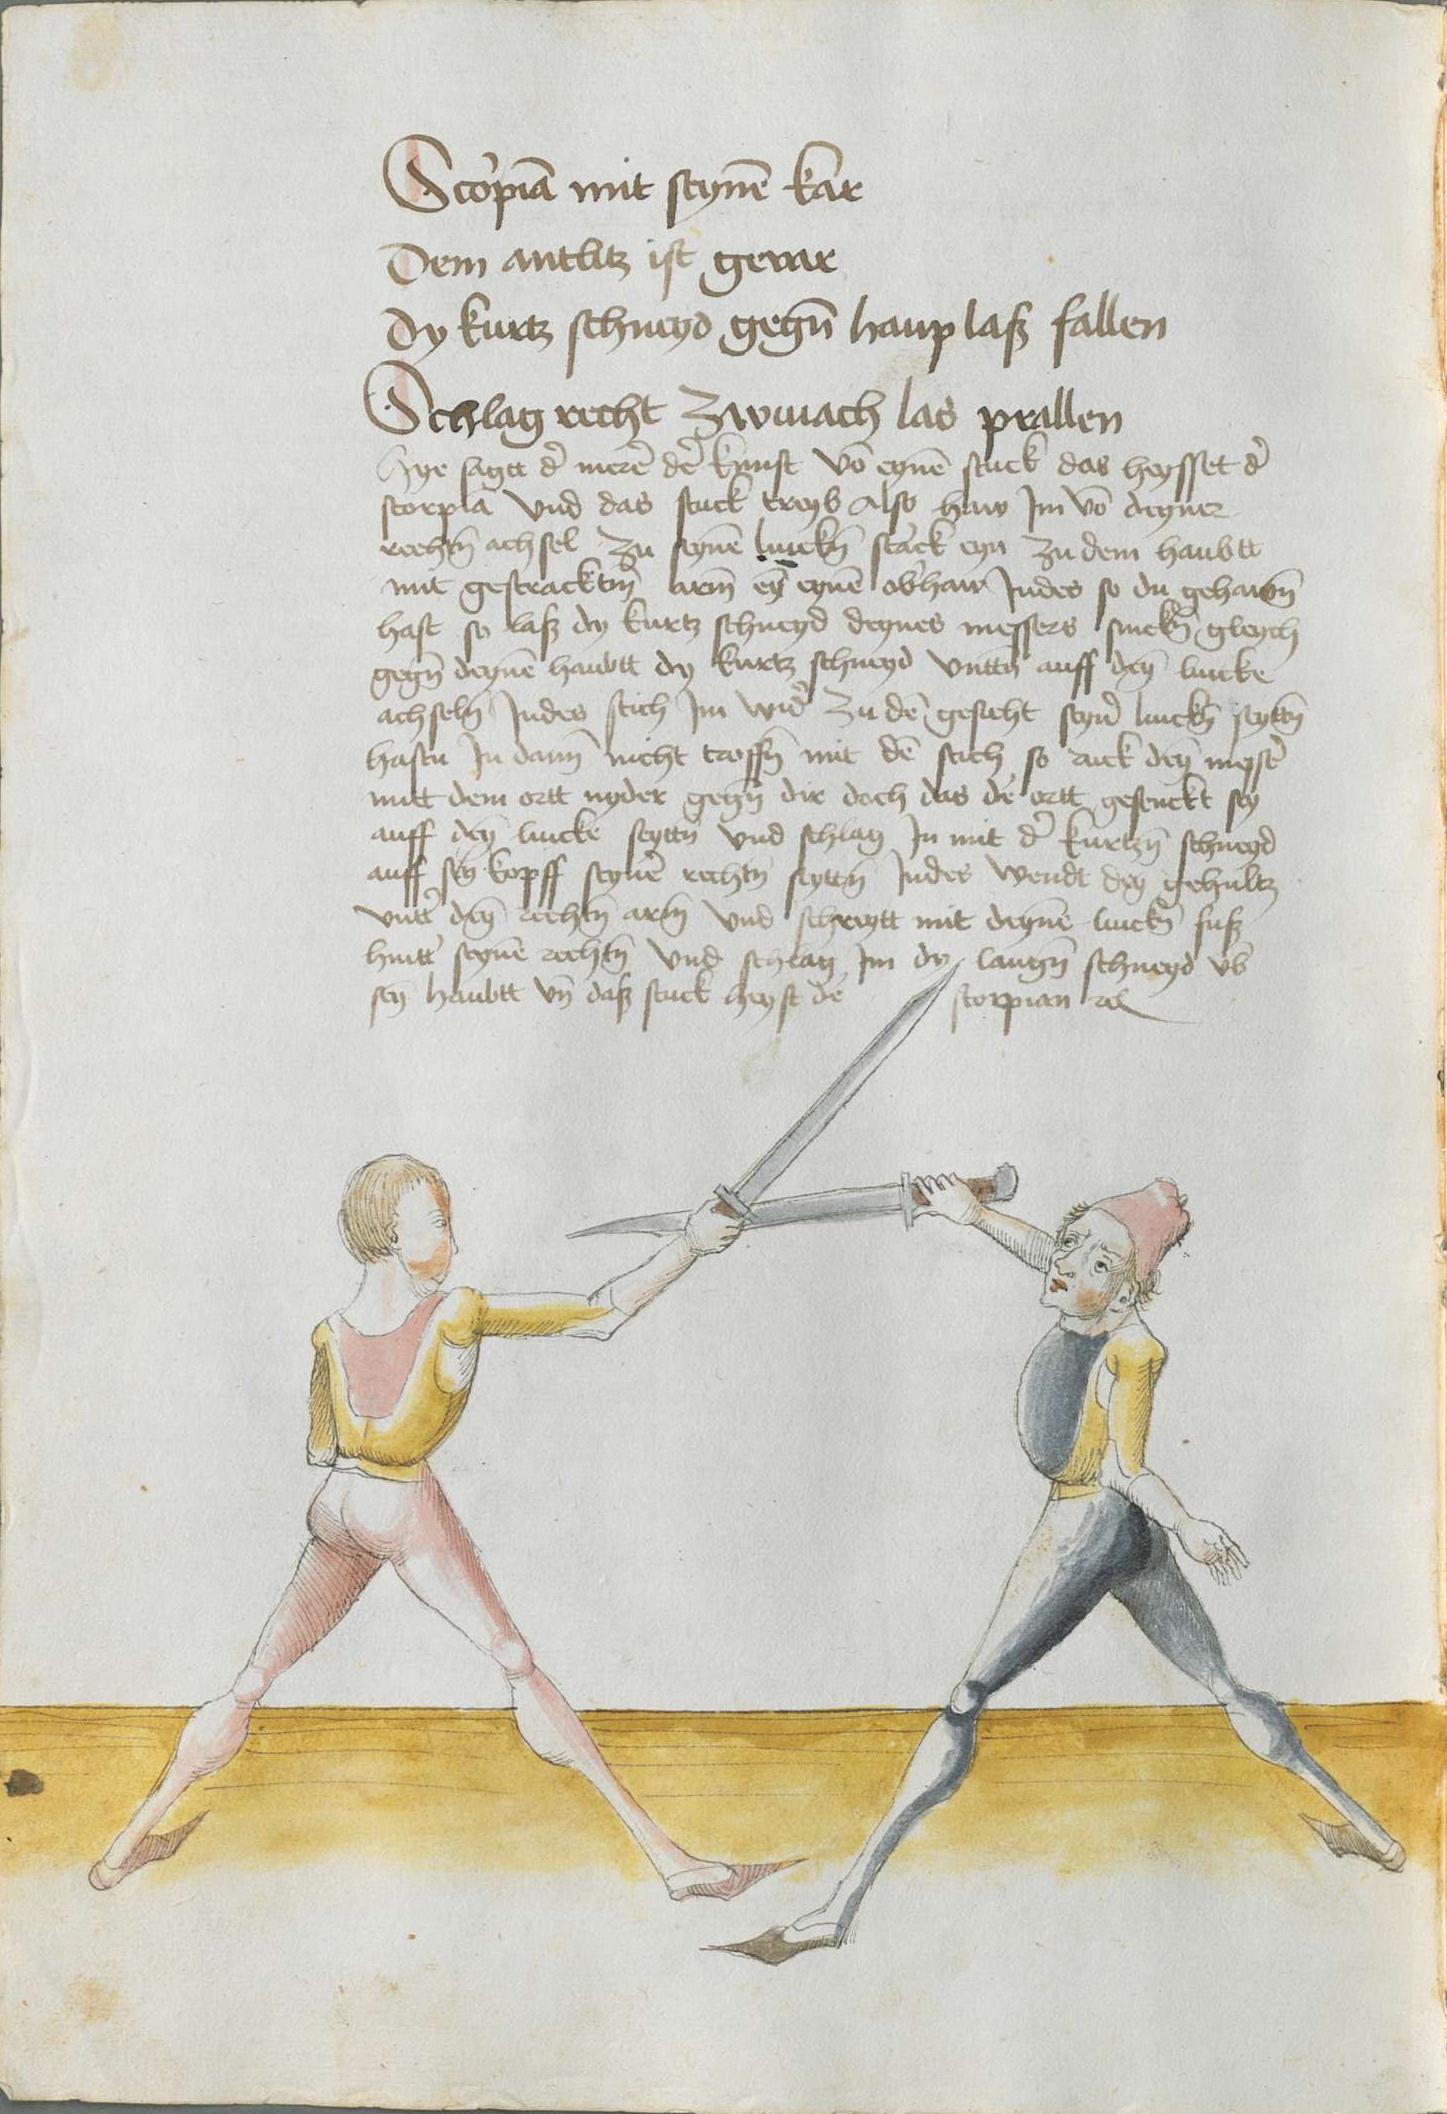 Scorpiā mit seynē kar
Dem antlitz ist gevar
Dy kurtz schneyd gegn̄ haup laß fallen
Schlag recht zwivach las prallen
Hye sagtt d' merē der kunst vō eynē stuck das heysset d'
scorpiā vnd das stuck treyb Also haw Im vō deyner
rechtn̄ achsel zu seynē linckn̄ starck eyn zu dem haubtt
mit gestracktm̄ arm̄ eȳ eynē obhaw Indes so du gehawn̄
hast so laß dy kurtz schneyd deynes messers sinckn̄ gleych
gegn̄ deynē haubtt dy kurtz schneyd vnttn̄ auff deȳ lincke
achseln̄ Indes stich Im wid' zu dē gesicht seyn' linckn̄ seyttn̄
hastu In dann̄ nicht troffn̄ mit dē stich so ruck deȳ mess'
mitt dem ortt nyder gegn̄ dir doch das de' ortt gesenckt sey
auff deȳ lincke seyttn̄ vnd schlag In mit d' kurtzn̄ schneyd
auff seȳ kopff seyne' rechtn̄ seyttn̄ Indes wendt deȳ gehultz
vntt' deȳ rechtn̄ arm̄ vnd schreytt mit deynē linckn̄ fuß
hintt' seynē rechtn̄ vnd schlag Im dy langn̄ schneyd vb'
seȳ haubtt vn̄ daß stuck heyst de' scorpian